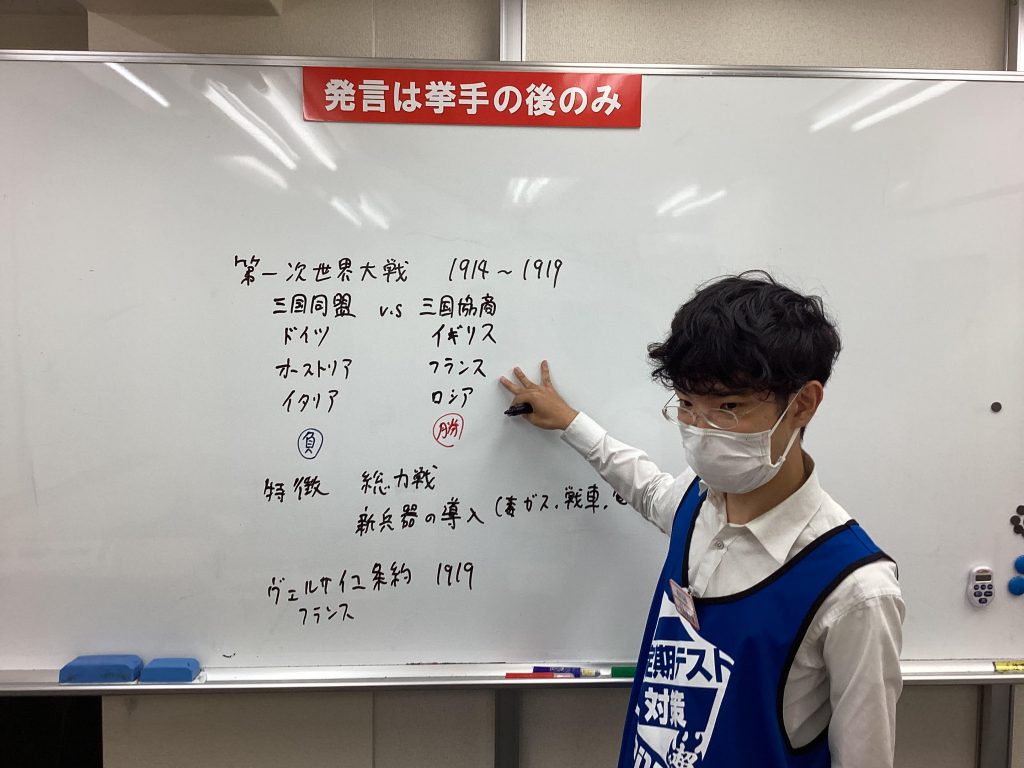 発言は挙手の後のみ
第一次世界大戦 1914～1919
三国同盟 v.s 三国協商
ドイツ イギリス
オーストリア フランス
イタリア ロシア
負 勝
特徴 総力戦
新兵器の導入 (毒ガス, 戦車,
ヴェルサイユ条約 1919
フランス
定期テスト
対策